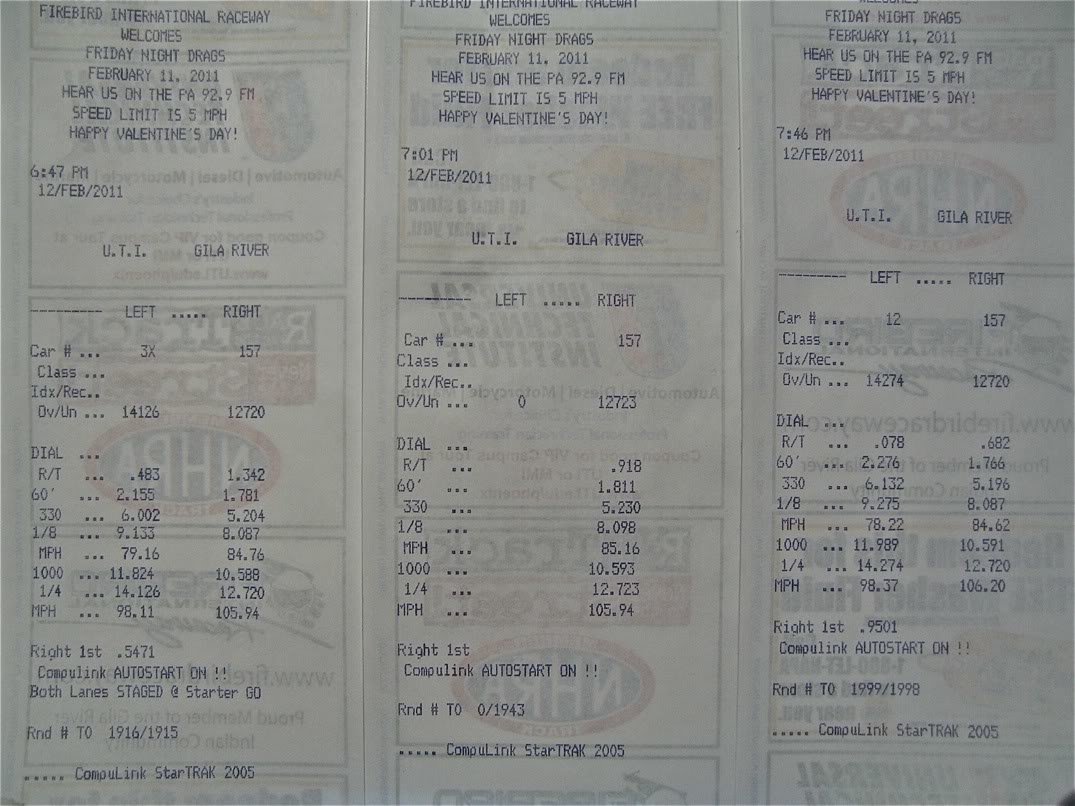 FIREBIRD INTERNATIONAL RACEWAY
WELCOMES
FRIDAY NIGHT DRAGS
FEBRUARY 11, 2011
HEAR US ON THE PA 92.9 FM
SPEED LIMIT IS 5 MPH
HAPPY VALENTINE'S DAY!
6:47 PM
12/FEB/2011
U.T.I. GILA RIVER
---------- LEFT ..... RIGHT
Car # ... 3X 157
Class ...
Idx/Rec..
Ov/Un ... 14126 12720
DIAL ...
R/T .483 1.342
60' ... 2.155 1.781
330 ... 6.002 5.204
1/8 ... 9.133 8.087
MPH ... 79.16 84.76
1000 ... 11.824 10.588
1/4 ... 14.126 12.720
MPH ... 98.11 105.94
Right 1st .5471
Compulink AUTOSTART ON !!
Both Lanes STAGED @ Starter GO
Rnd # TO 1916/1915
..... CompuLink StarTRAK 2005
FIREBIRD INTERNATIONAL RACEWAY
WELCOMES
FRIDAY NIGHT DRAGS
FEBRUARY 11, 2011
HEAR US ON THE PA 92.9 FM
SPEED LIMIT IS 5 MPH
HAPPY VALENTINE'S DAY!
7:01 PM
12/FEB/2011
U.T.I. GILA RIVER
---------- LEFT ..... RIGHT
Car # ... 157
Class ...
Idx/Rec..
Ov/Un ... 0 12723
DIAL ...
R/T ... .918
60' ... 1.811
330 ... 5.230
1/8 ... 8.098
MPH ... 85.16
1000 ... 10.593
1/4 ... 12.723
MPH ... 105.94
Right 1st
Compulink AUTOSTART ON !!
Rnd # TO 0/1943
..... CompuLink StarTRAK 2005
WELCOMES
FRIDAY NIGHT DRAGS
FEBRUARY 11, 2011
HEAR US ON THE PA 92.9 FM
SPEED LIMIT IS 5 MPH
HAPPY VALENTINE'S DAY!
7:46 PM
12/FEB/2011
U.T.I. GILA RIVER
---------- LEFT ..... RIGHT
Car # ... 12 157
Class ...
Idx/Rec..
Ov/Un ... 14274 12720
DIAL ...
R/T ... .078 .682
60' ... 2.276 1.766
330 ... 6.132 5.196
1/8 ... 9.275 8.087
MPH ... 78.22 84.62
1000 ... 11.989 10.591
1/4 ... 14.274 12.720
MPH ... 98.37 106.20
Right 1st .9501
Compulink AUTOSTART ON !!
Rnd # TO 1999/1998
..... CompuLink StarTRAK 2005